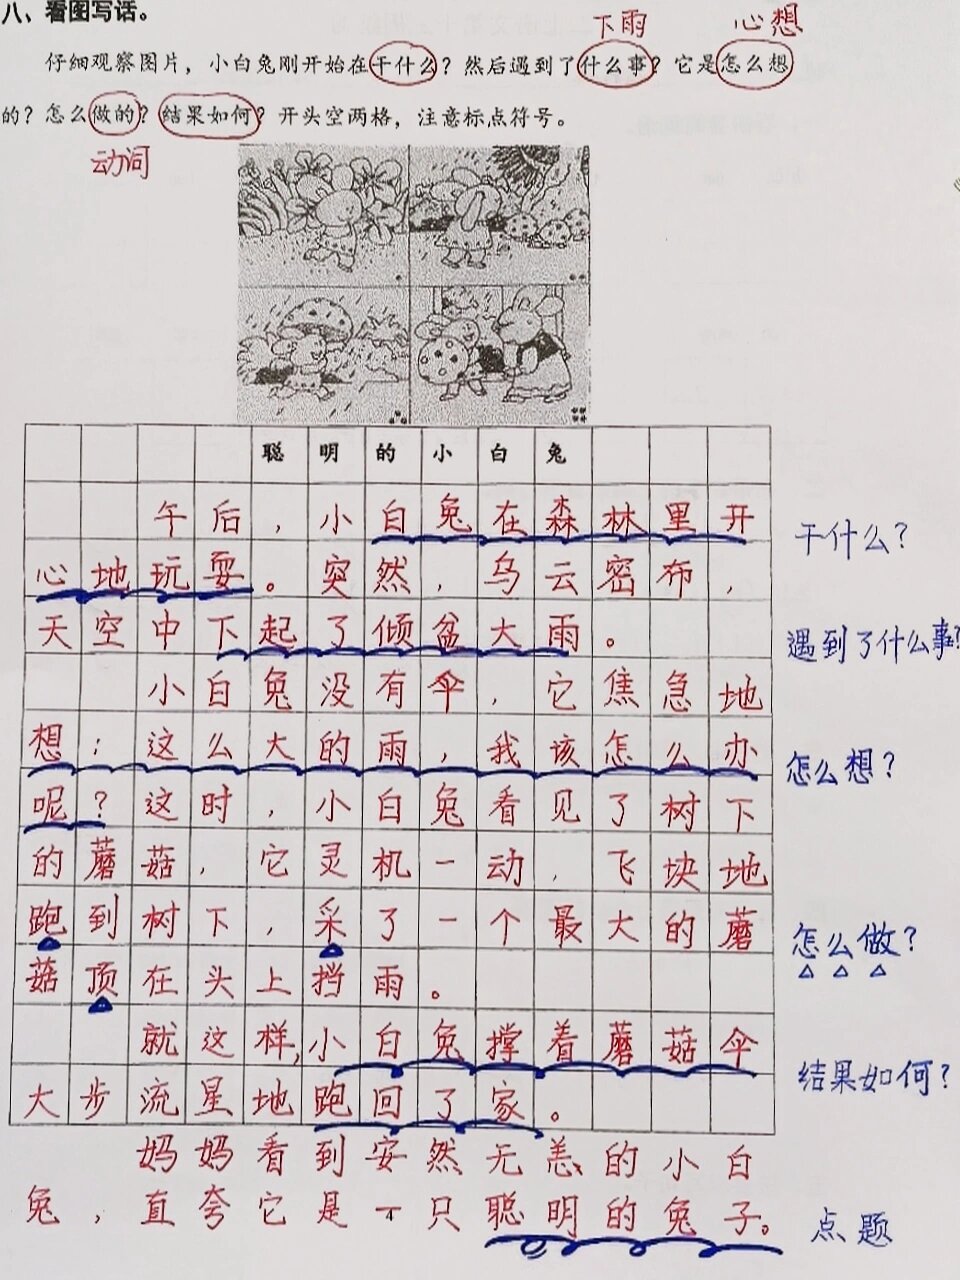 八、看图写话。
下雨 心想
仔细观察图片，小白兔刚开始在干什么？然后遇到了什么事？它是怎么想
的？怎么做的？结果如何？开头空两格，注意标点符号。
动词
聪明的小白兔
午后，小白兔在森林里开
干什么？
心地玩耍。突然，乌云密布，
天空中下起了倾盆大雨。
遇到了什么事？
小白兔没有伞，它焦急地
想：这么大的雨，我该怎么办
怎么想？
呢？这时，小白兔看见了树下
的蘑菇，它灵机一动，飞块地
跑到树下，采了一个最大的蘑
怎么做？
菇顶在头上挡雨。
就这样，小白兔撑着蘑菇伞
结果如何？
大步流星地跑回了家。
妈妈看到安然无恙的小白
兔，直夸它是一只聪明的兔子。
点题
4